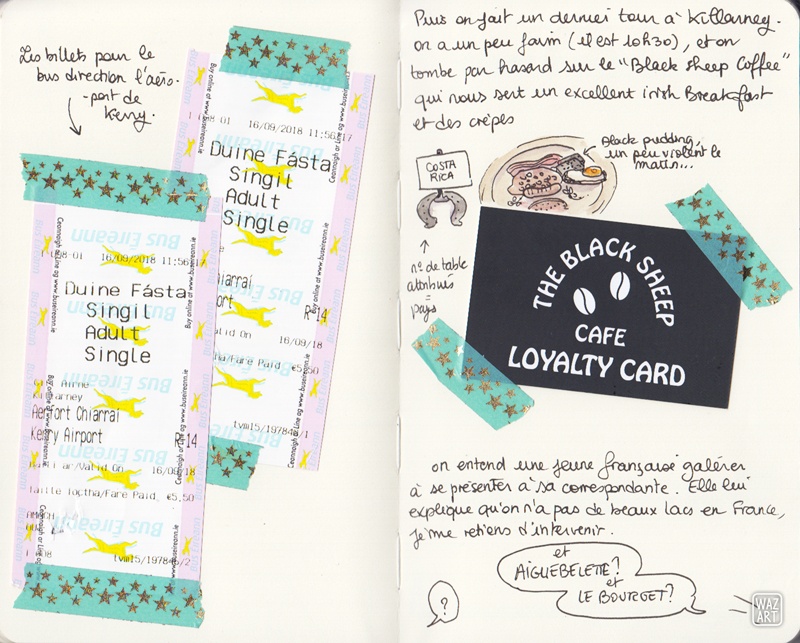 Les billets pour le
bus direction l'aéro-
-port de
Kerry.
1 08-01 16/09/2018 11:56:17
Duine Fásta
Singil
Adult
Single
hiarraí
ort R 14
alid On 16/09/18
ha/Fare Paid €5,50
tvm15/197846/1
Buy online at www.buseireann.ie
Ceannaigh ar Líne ag www.buseireann.ie
Bus Éireann
1 08-01 16/09/2018 11:56:17
Duine Fásta
Singil
Adult
Single
Cill Airne
Killarney
Aerfort Chiarraí
Kerry Airport R 14
Bailí ar/Valid On 16/09/18
Táille Íoctha/Fare Paid €5,50
tvm15/197846/2
Buy online at www.buseireann.ie
Ceannaigh ar Líne ag www.buseireann.ie
Bus Éireann
Puis on fait un dernier tour à Killarney.
on a un peu faim (il est 10h30), et on
tombe par hasard sur le "Black sheep Coffee"
qui nous sert un excellent irish Breakfast
et des crêpes
COSTA
RICA
Black pudding,
un peu violent le
matin...
n° de table
attribués
=
pays
THE BLACK SHEEP
CAFE
LOYALTY CARD
on entend une jeune française galérer
à se présenter à sa correspondante. Elle lui
explique qu'on n'a pas de beaux lacs en France,
je me retiens d'intervenir.
et
AIGUEBELETTE?
et
LE BOURGET?
?
WAZ
ART